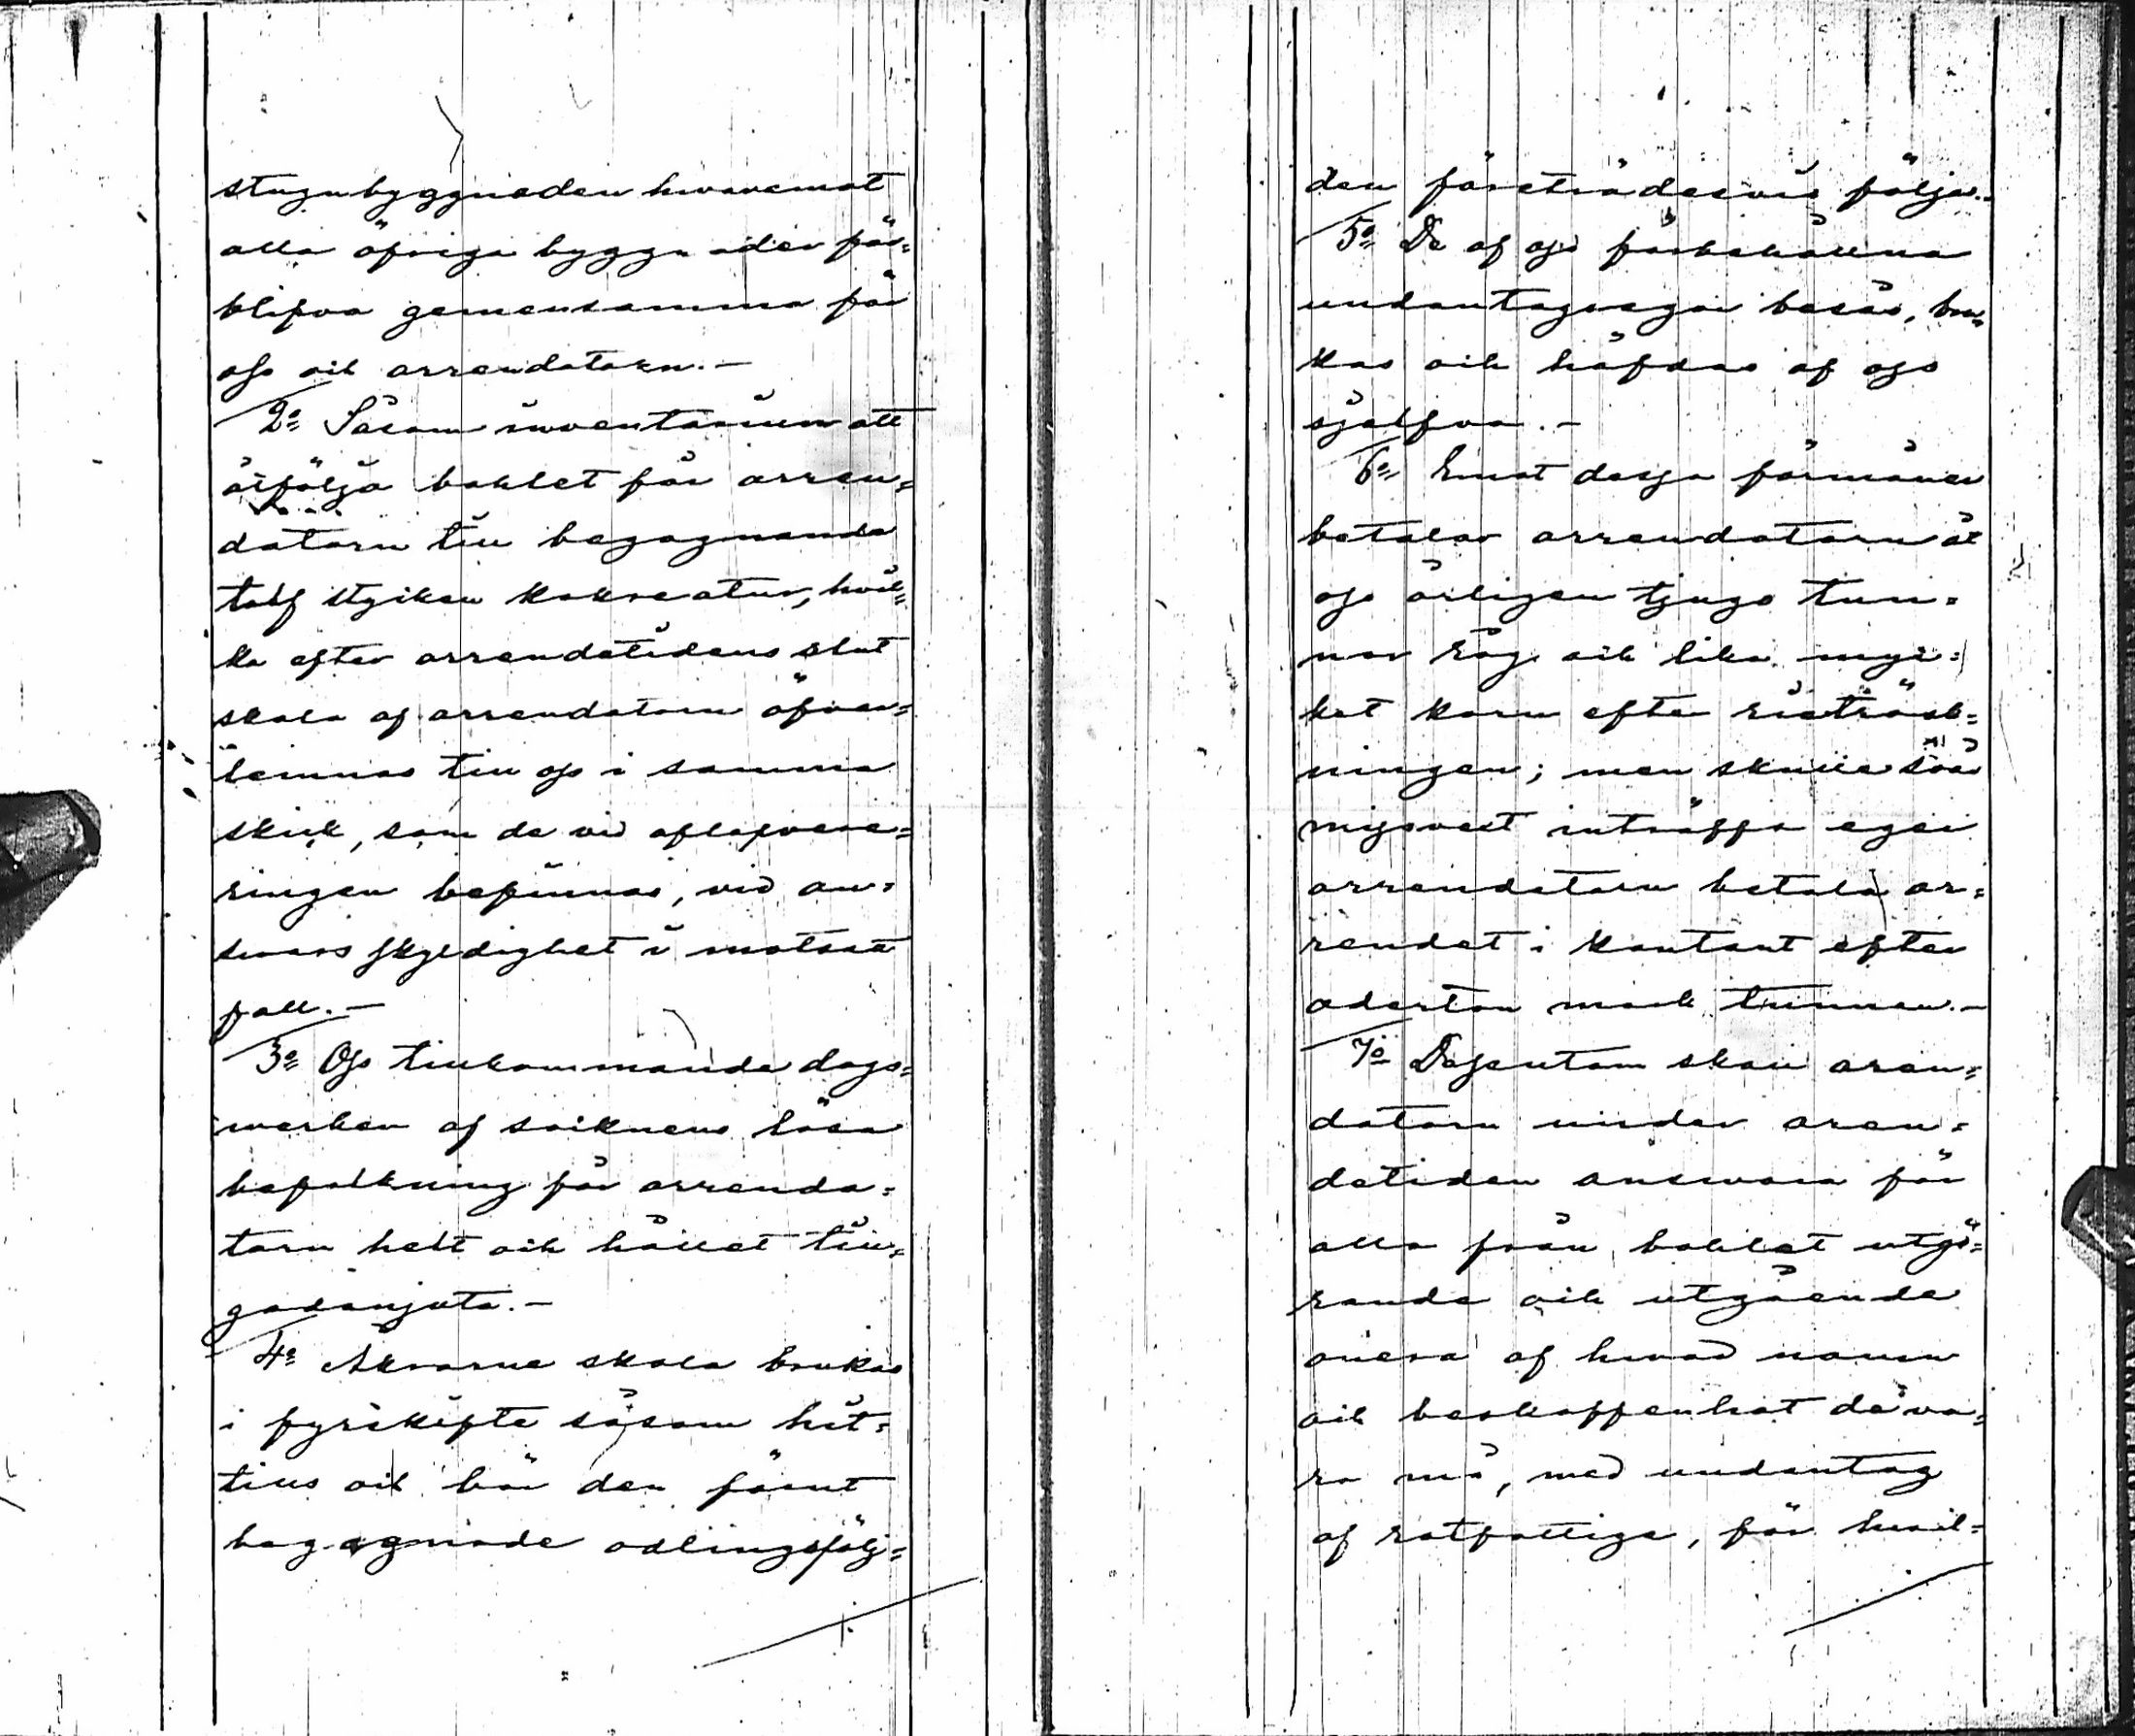 stugubyggnaden hvaremot
alla öfriga byggnader för=
blifva gemensamma för
oss och arrendatorn.—
2o Såsom inventarium att
åtfölja bohlet får arren=
datorn till begagnande
tolf stycken kokreatur, hvil=
ka efter arrendetidens slut
skola af arrendatorn öfver=
lemnas till oss i samma
skick, som de vid aflefvere=
ringen befinnas, vid an=
svars skyldighet i motsatt
fall.—
3o Oss tillkommande dags=
verken af socknens lösa
befolkning får arrenda=
torn helt och hållet till=
godonjuta.—
4o Åkrarne skola brukas
i fyrskifte såsom hit=
tills och bör den förut
begagnade odlingsfölj=
den företrädesvis följas.
5o De af oss förbehållna
undantagsegor besås, bru=
kas och häfdas af oss
sjelfva.—
6o Emot dessa förmåner
betalar arrendatorn åt
oss årligen tjugo tun=
nor råg och lika myc=
ket korn efter riströsk=
ningen; men skulle svår
missvext inträffa eger
arrendatorn betala ar=
rendet i kontant efter
aderton mark tunnan.—
7o Dessutom skall aren=
datorn under aren=
detiden ansvara för
alla från bohlet utgö=
rande och utgående
onera af hvad namn
och beskaffenhet de va=
ra må, med undantag
af rotfattiga, för hvil=